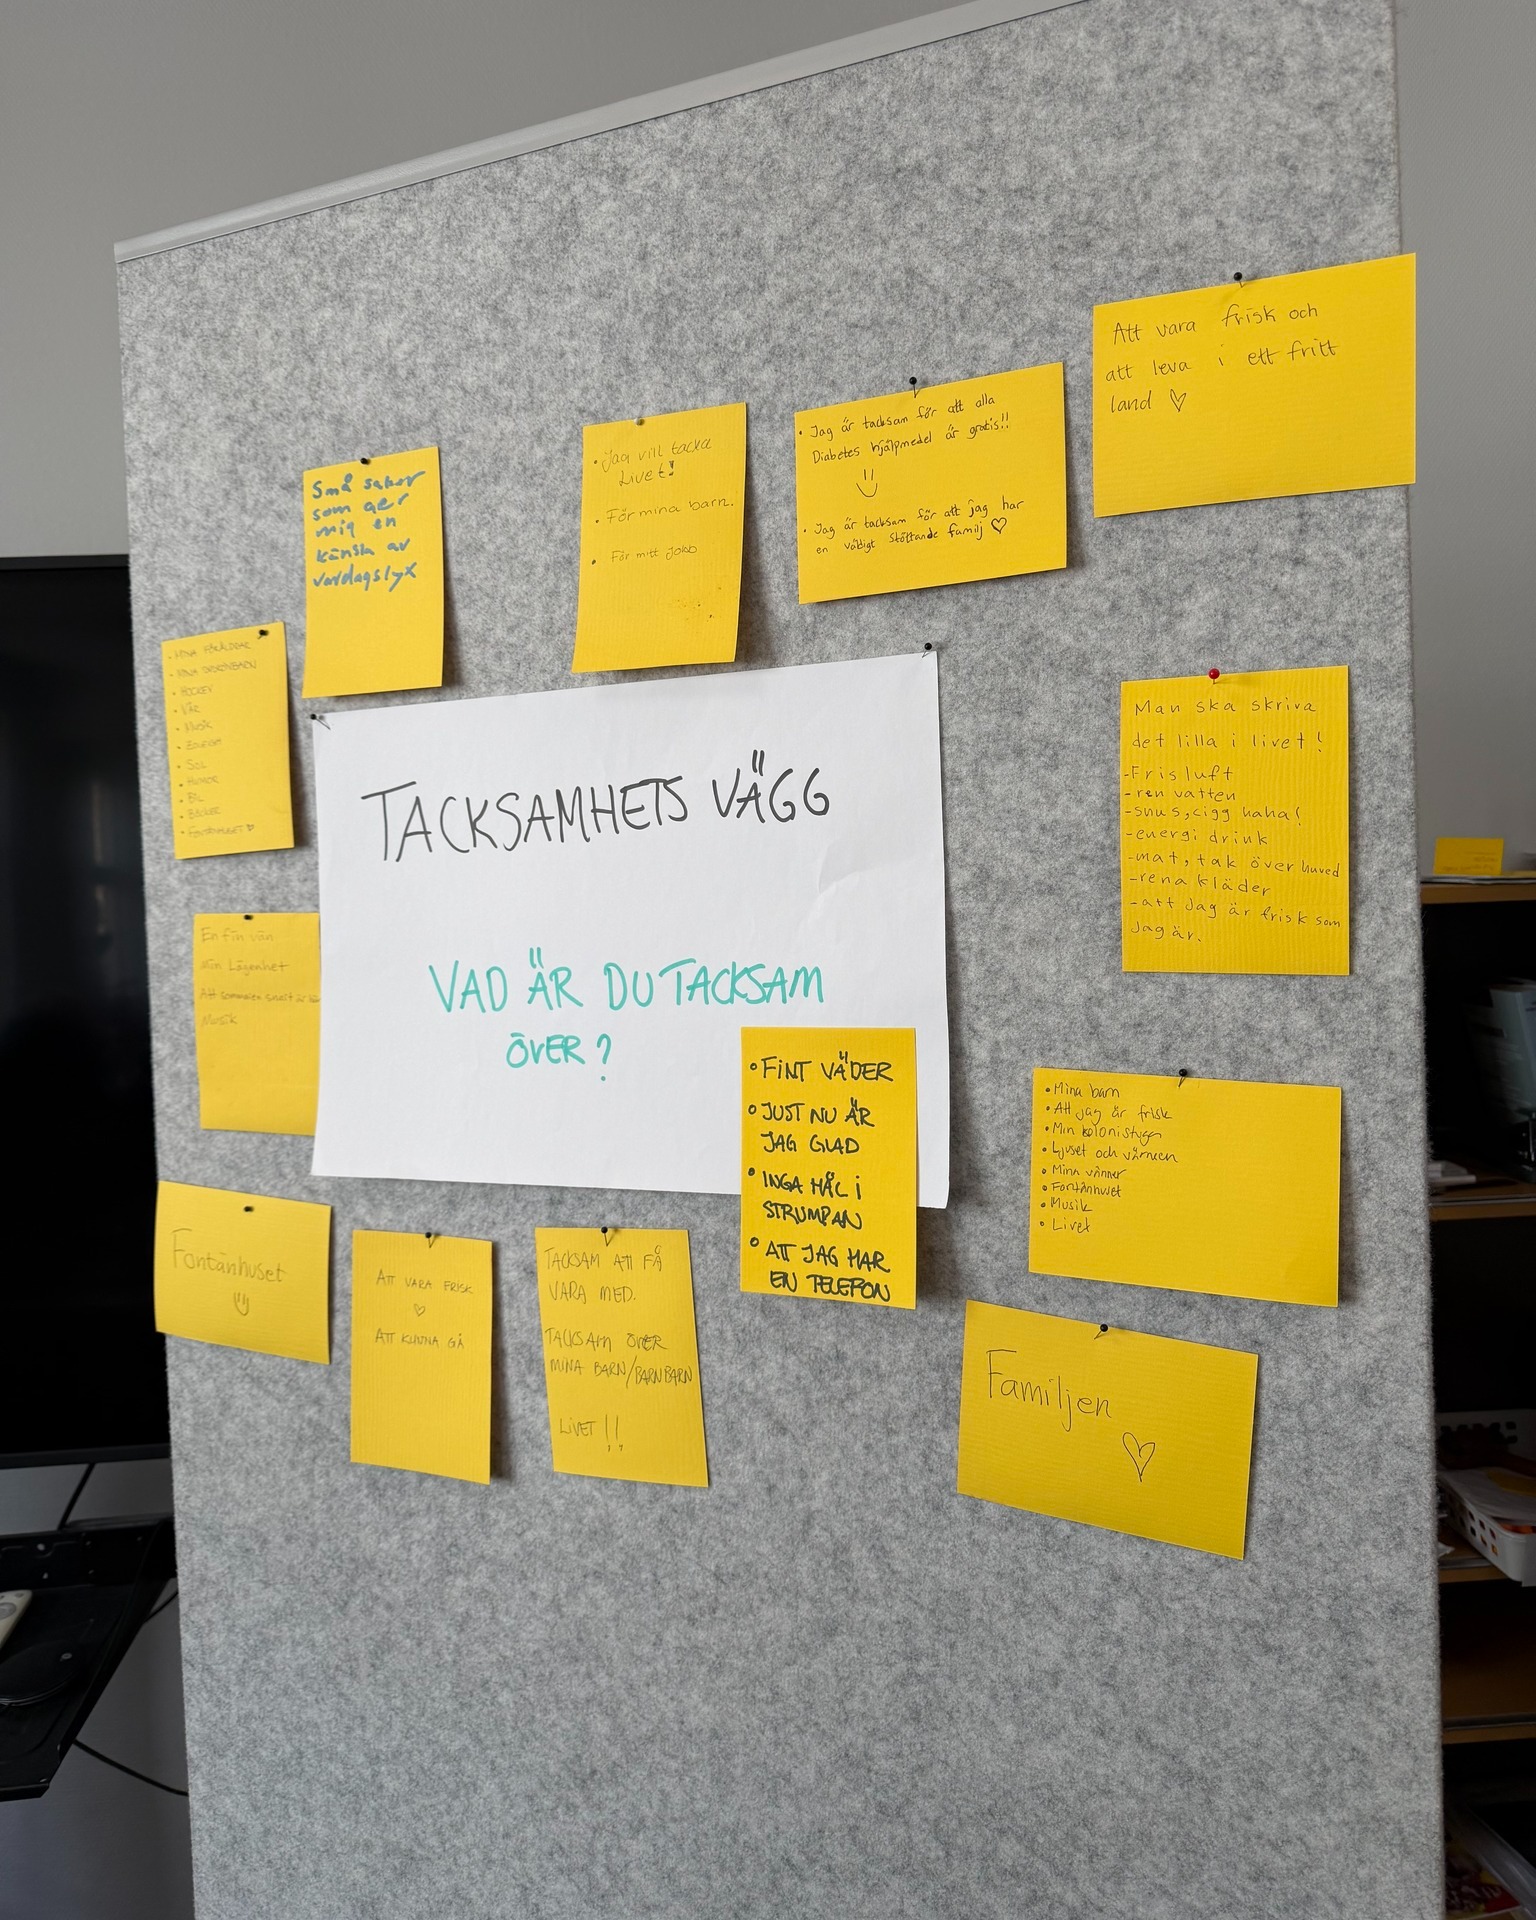 Att vara frisk och
att leva i ett fritt
land ♡
• Jag är tacksam för att alla
Diabetes hjälpmedel är gratis!!
• Jag är tacksam för att jag har
en väldigt stöttande familj ♡
• Jag vill tacka
Livet!
• För mina barn.
• För mitt jobb
Små saker
som ger
mig en
känsla av
vardagslyx
• MINA FÖRÄLDRAR
• MINA SYSKONBARN
• VÅR
• MUSIK
• SOL
• HUMOR
• BIL
• BÖCKER
• FONTÄNHUSET ♡
TACKSAMHETS VÄGG
VAD ÄR DU TACKSAM
ÖVER?
Man ska skriva
det lilla i livet!
-Frisluft
-ren vatten
-snus, cigg haha!
-energi drink
-mat, tak över huved
-rena kläder
-att Jag är frisk som
Jag är.
En fin vän
Min Lägenhet
Att sommaren snart är här
Musik
• FINT VÄDER
• JUST NU ÄR
JAG GLAD
• INGA HÅL I
STRUMPAN
• ATT JAG HAR
EN TELEFON
• Mina barn
• Att jag är frisk
• Min kolonistuga
• Ljuset och värmen
• Mina vänner
• Fontänhuset
• Musik
• Livet
Fontänhuset
ATT VARA FRISK
♡
ATT KUNNA GÅ
TACKSAM ATT FÅ
VARA MED.
TACKSAM ÖVER
MINA BARN/BARNBARN
LIVET !!
Familjen
♡